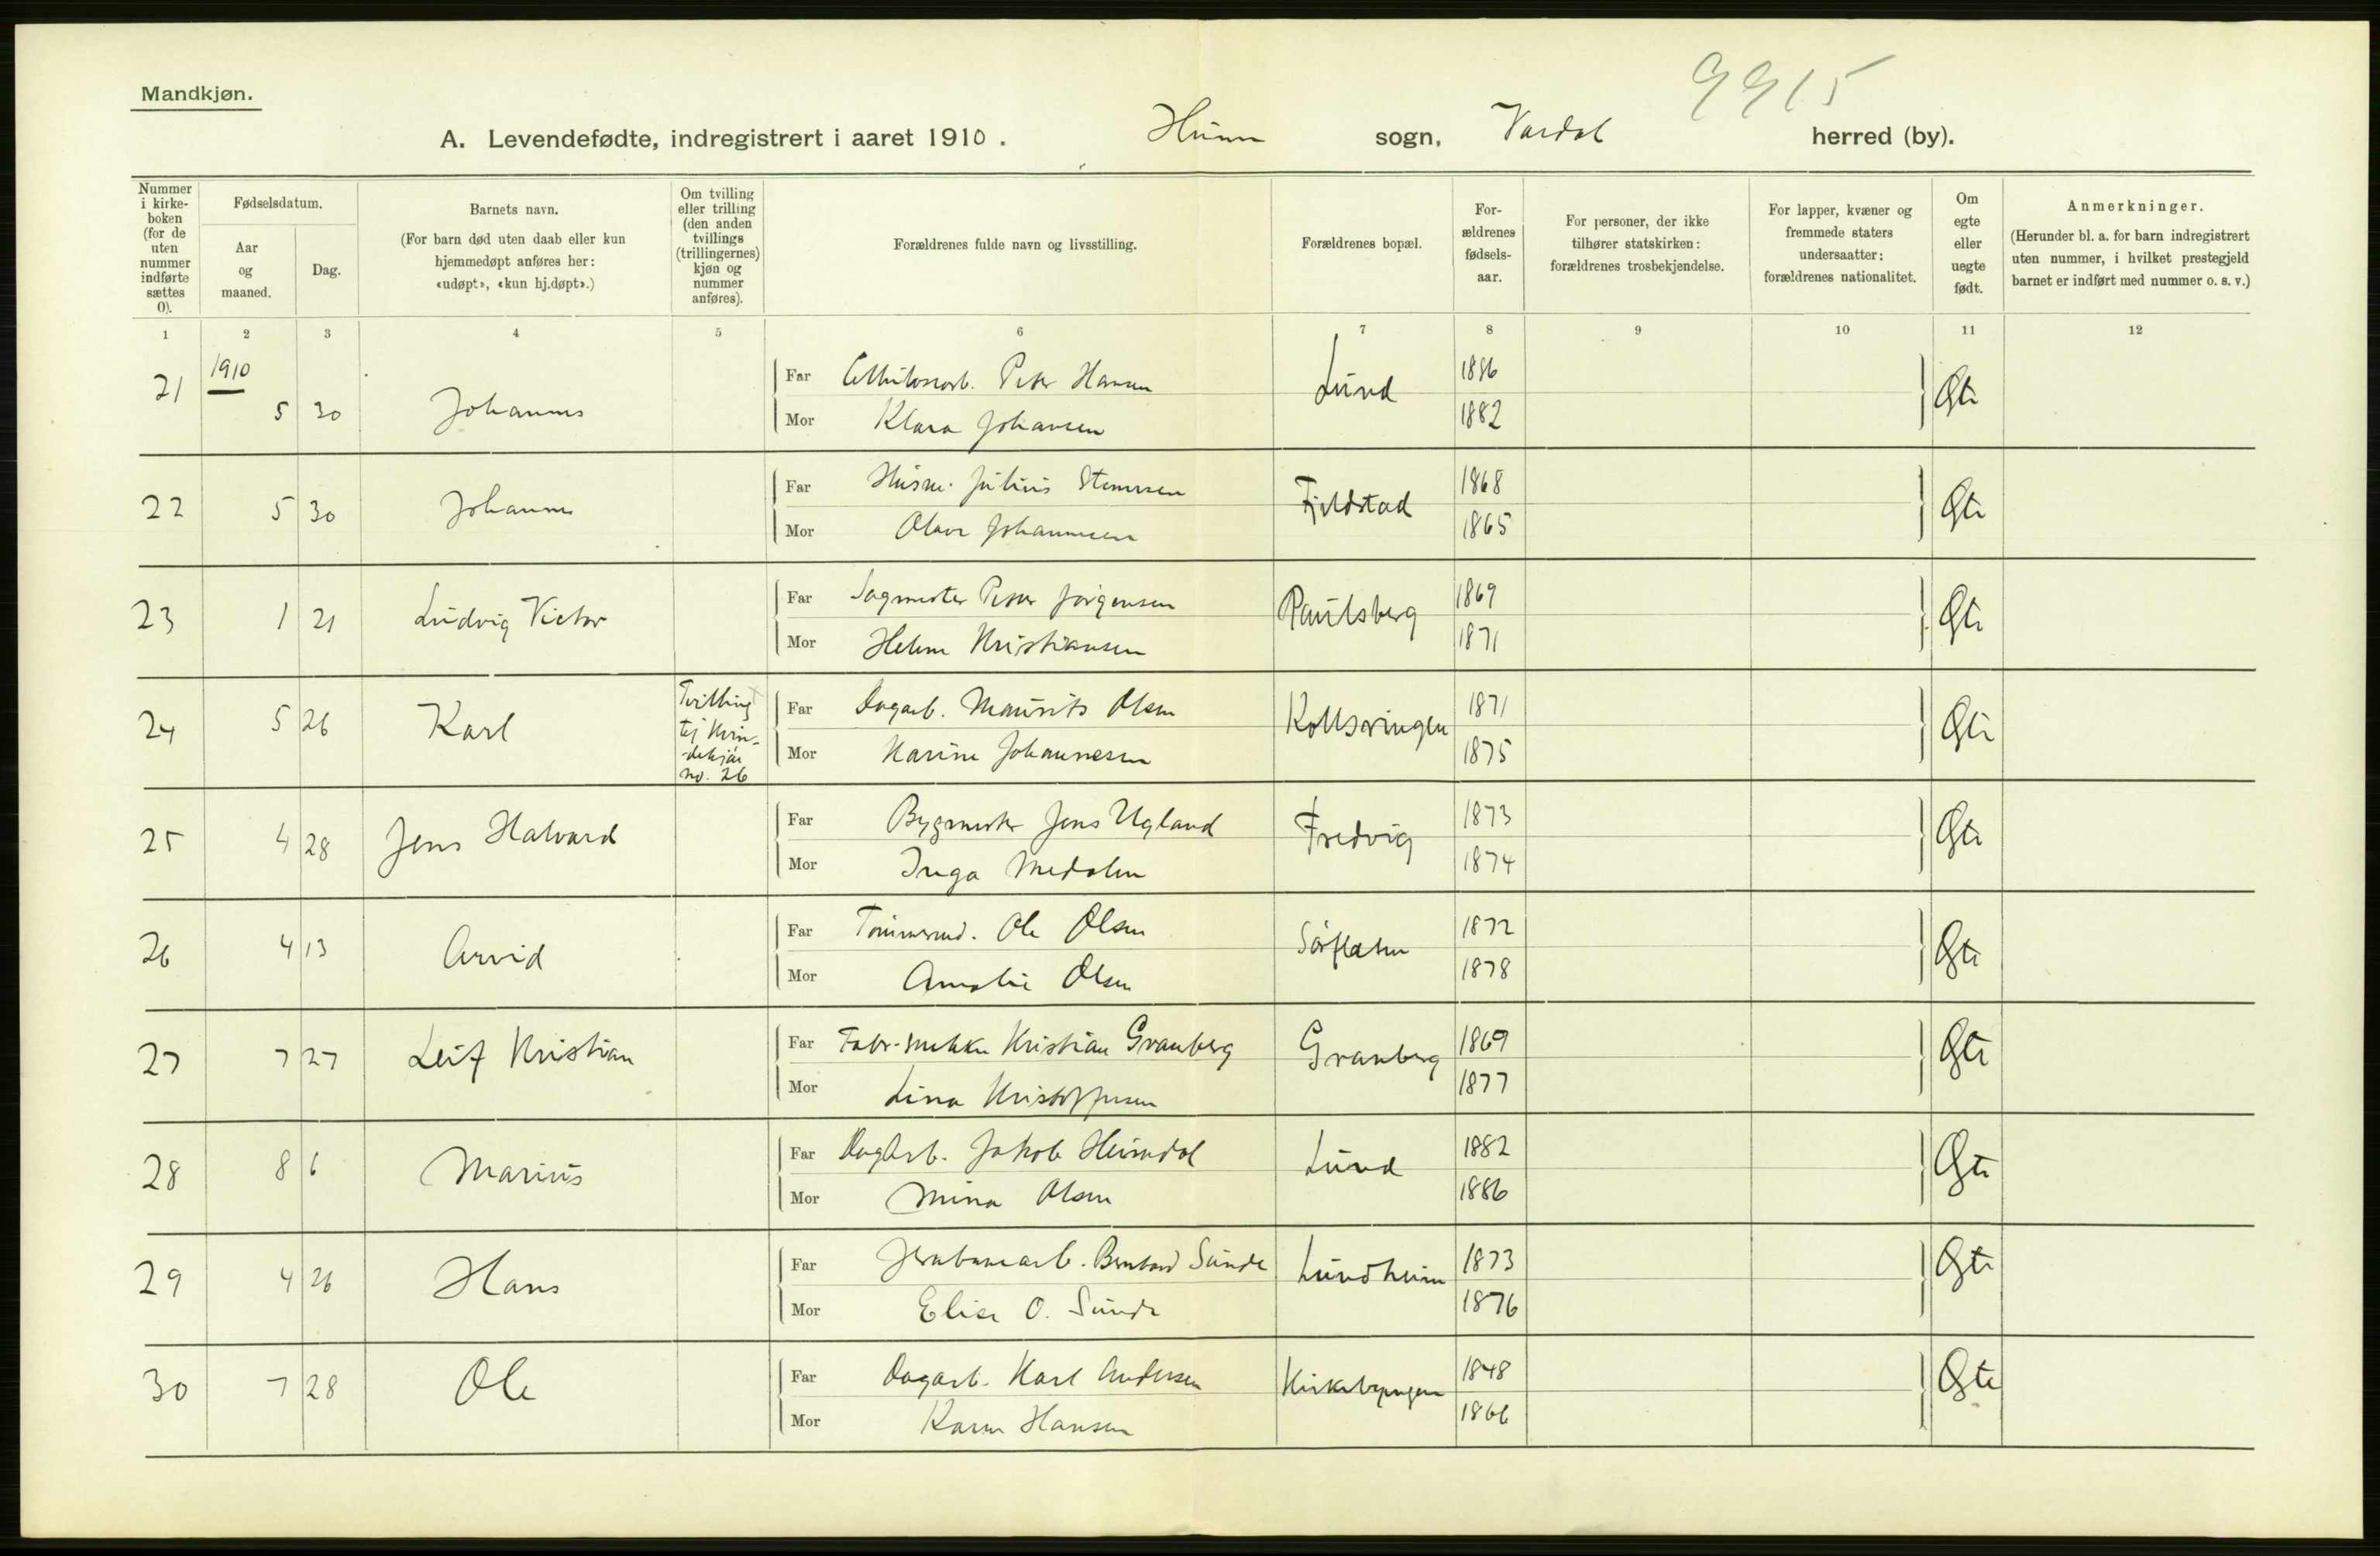 9915
Mandkjøn.
A. Levendefødte, indregistrert i aaret 1910. Hunn sogn, Vardal herred (by).
Nummer i kirke-boken (for de uten nummer indførte sættes 0).
Fødselsdatum.
Aar og maaned.
Dag.
Barnets navn.
(For barn død uten daab eller kun hjemmedøpt anføres her: «udøpt», «kun hj.døpt».)
Om tvilling eller trilling (den anden tvillings (trillingernes) kjøn og nummer anføres).
Forældrenes fulde navn og livsstilling.
Forældrenes bopæl.
For-ældrenes fødsels-aar.
For personer, der ikke tilhører statskirken: forældrenes trosbekjendelse.
For lapper, kvæner og fremmede staters undersaatter: forældrenes nationalitet.
Om egte eller uegte født.
Anmerkninger.
(Herunder bl. a. for barn indregistrert uten nummer, i hvilket prestegjeld barnet er indført med nummer o. s. v.)
1 2 3 4 5 6 7 8 9 10 11 12
1910
21 5 30 Johannes Far Peter Hansen Lund 1886 Gte
Mor Klara Johansen 1882
22 5 30 Johannes Far Husm. Julius Stennsen Fjeldstad 1868 Gte
Mor Olava Johannesen 1865
23 1 21 Ludvig Victor Far Sagmester Peter Jørgensen Paulsberg 1869 Gte
Mor Helene Kristiansen 1871
24 5 26 Karl Tvilling til Kvin-dekjøn no. 26 Far Dagarb. Maurits Olsen Kollsvingen 1871 Gte
Mor Karine Johannesen 1875
25 4 28 Jens Halvard Far Bygmester Jens Ugland Fredvig 1873 Gte
Mor Inga Medalen 1874
26 4 13 Arvid Far Tømmermd. Ole Olsen Sørflaten 1872 Gte
Mor Amalie Olsen 1878
27 7 27 Leif Kristian Far Fabr-snekker Kristian Granberg Granberg 1869 Gte
Mor Lina Kristoffersen 1877
28 8 6 Marius Far Dagarb. Jakob Heimdal Lund 1882 Gte
Mor Mina Olsen 1886
29 4 26 Hans Far Jernbanearb. Bernhard Sunde Lundheim 1873 Gte
Mor Elise O. Sunde 1876
30 7 28 Ole Far Dagarb. Karl Andersen Kirkebyengen 1848 Gte
Mor Karen Hansen 1866